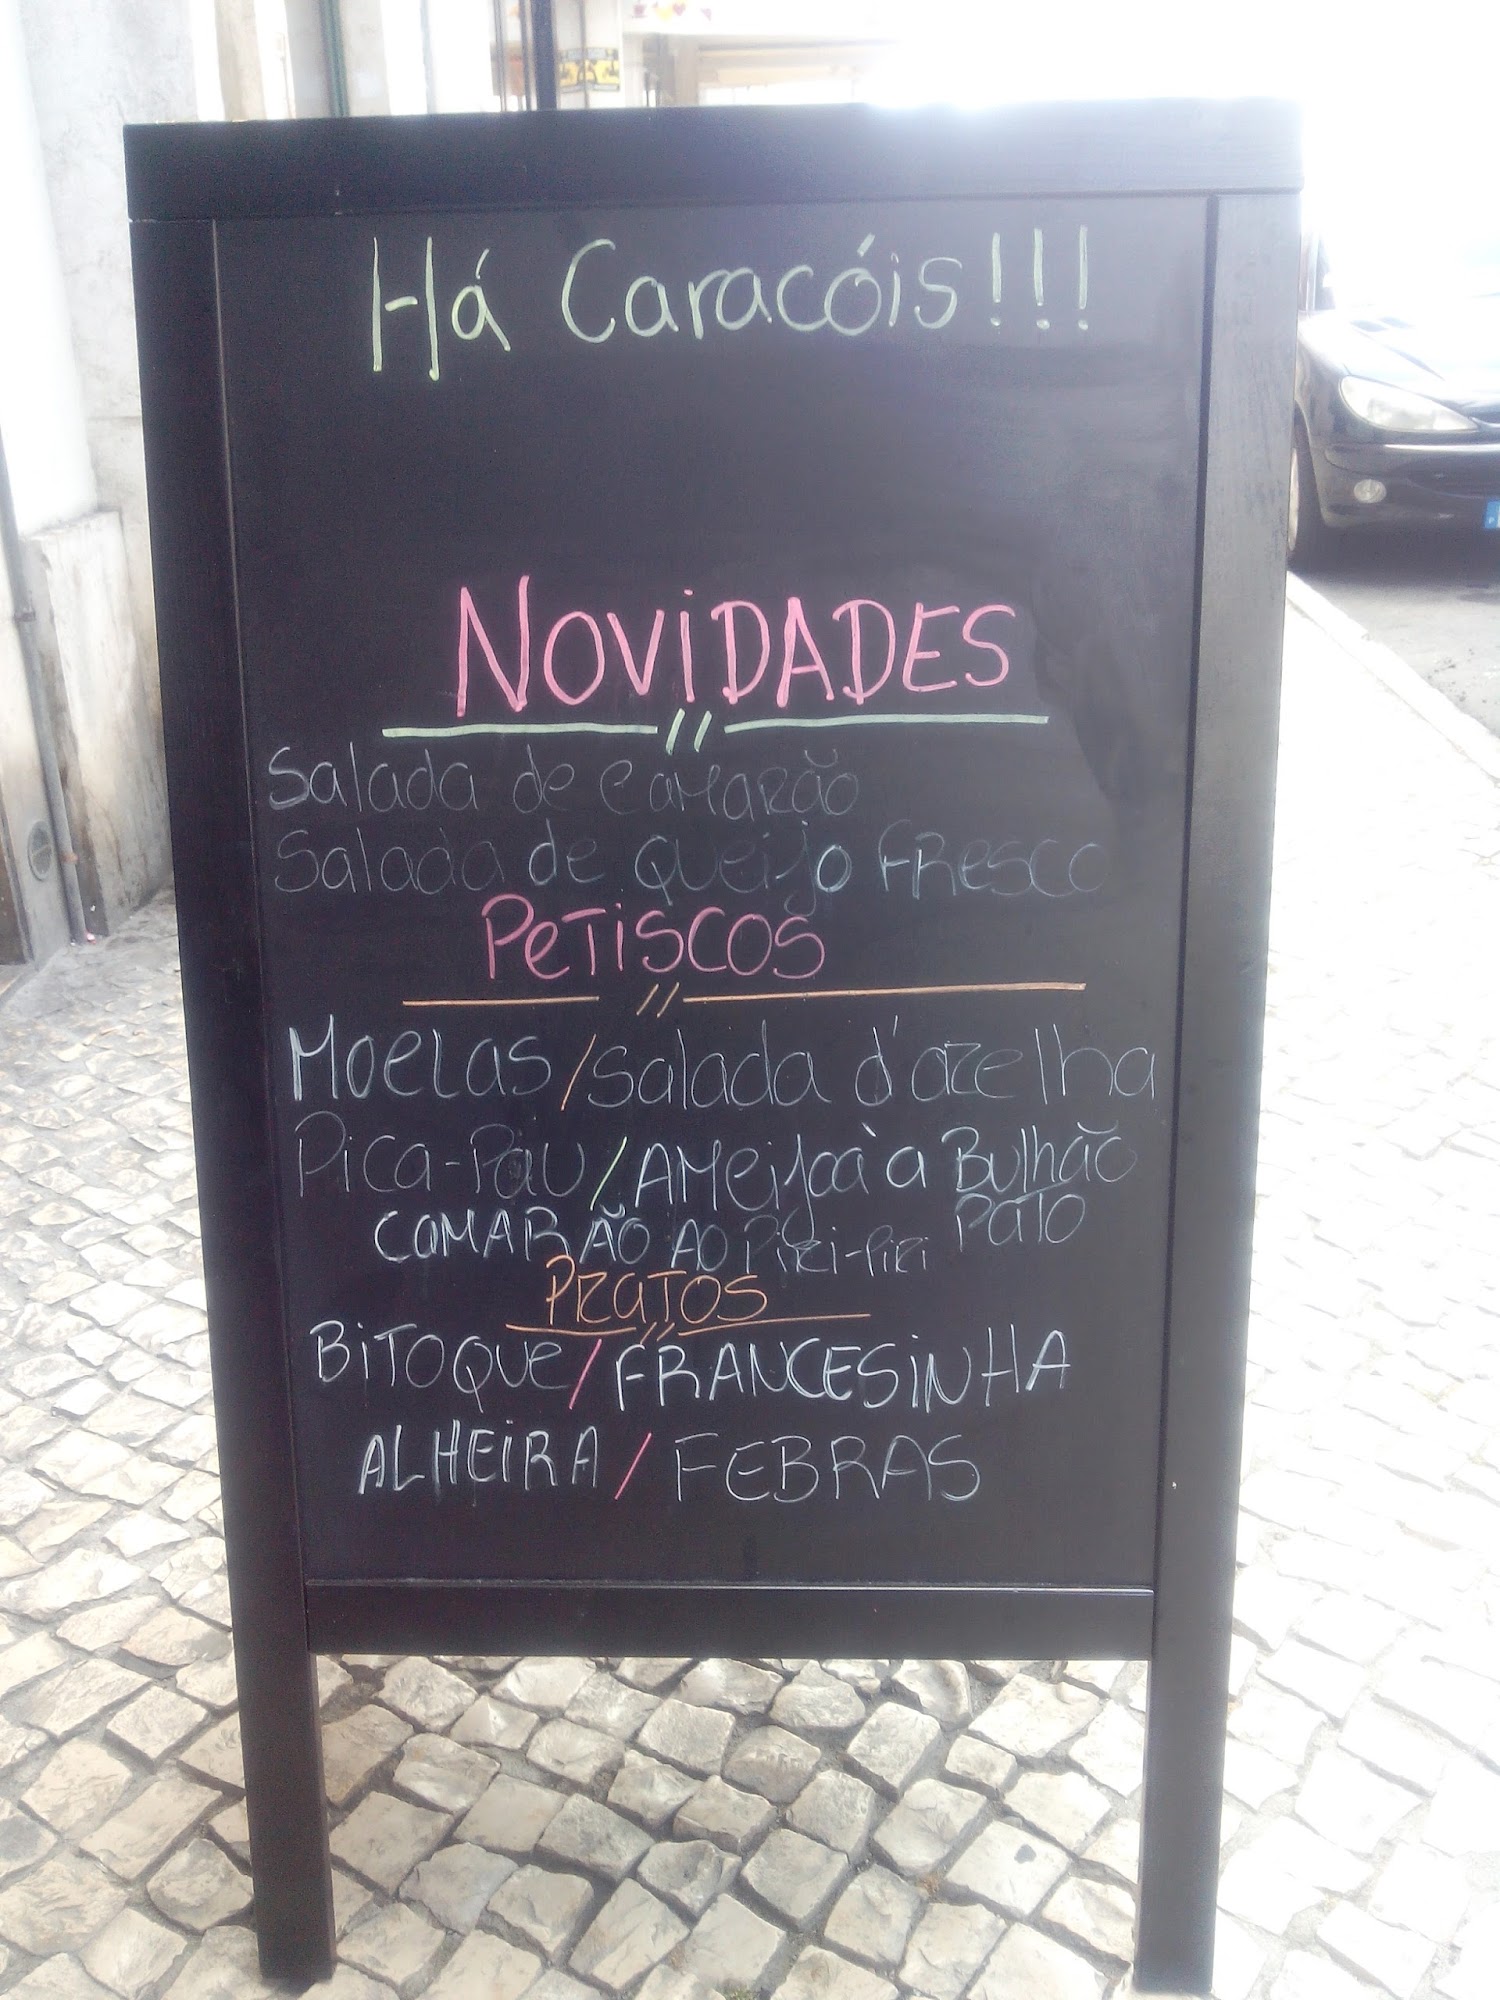 Há Caracóis!!!
NOVIDADES
Salada de Camarão
Salada de queijo fresco
PeTiscos
Moelas/Salada d'azelha
Pica-Pau/AMeijoa à Bulhão
Pato
CAMARÃO AO PiRi-PiRi
PRATOS
BiTOQUe/FRANCESiNHA
ALHEiRA/FEBRAS